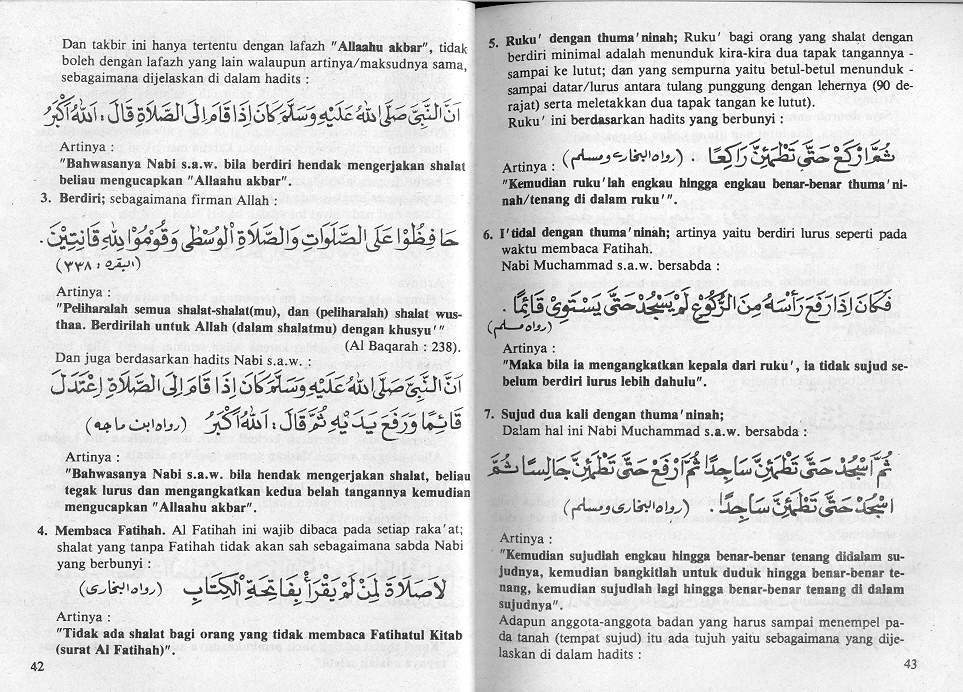 Dan takbir ini hanya tertentu dengan lafazh "Allaahu akbar", tidak
boleh dengan lafazh yang lain walaupun artinya/maksudnya sama,
sebagaimana dijelaskan di dalam hadits :
اَنَّ النَّبِيَّ صَلَّى اللهُ عَلَيْهِ وَسَلَّمَ كَانَ اِذَا قَامَ اِلَى الصَّلَاةِ قَالَ : اَللهُ اَكْبَرُ
Artinya :
"Bahwasanya Nabi s.a.w. bila berdiri hendak mengerjakan shalat
beliau mengucapkan "Allaahu akbar".
3. Berdiri; sebagaimana firman Allah :
حَافِظُوْا عَلَى الصَّلَوَاتِ وَالصَّلَاةِ الْوُسْطٰى وَقُوْمُوْا لِلّٰهِ قَانِتِيْنَ .
(البقره : ٢٣٨)
Artinya :
"Peliharalah semua shalat-shalat(mu), dan (peliharalah) shalat wus-
thaa. Berdirilah untuk Allah (dalam shalatmu) dengan khusyu'"
(Al Baqarah : 238).
Dan juga berdasarkan hadits Nabi s.a.w. :
اَنَّ النَّبِيَّ صَلَّى اللهُ عَلَيْهِ وَسَلَّمَ كَانَ اِذَا قَامَ اِلَى الصَّلَاةِ اِعْتَدَلَ
قَائِمًا وَرَفَعَ يَدَيْهِ ثُمَّ قَالَ : اَللهُ اَكْبَرُ (رواه ابن ماجه)
Artinya :
"Bahwasanya Nabi s.a.w. bila hendak mengerjakan shalat, beliau
tegak lurus dan mengangkatkan kedua belah tangannya kemudian
mengucapkan "Allaahu akbar".
4. Membaca Fatihah. Al Fatihah ini wajib dibaca pada setiap raka'at;
shalat yang tanpa Fatihah tidak akan sah sebagaimana sabda Nabi
yang berbunyi :
لَاصَلَاةَ لِمَنْ لَمْ يَقْرَأْ بِفَاتِحَةِ الْكِتَابِ (رواه البخارى)
Artinya :
"Tidak ada shalat bagi orang yang tidak membaca Fatihatul Kitab
(surat Al Fatihah)".
42
5. Ruku' dengan thuma'ninah; Ruku' bagi orang yang shalat dengan
berdiri minimal adalah menunduk kira-kira dua tapak tangannya -
sampai ke lutut; dan yang sempurna yaitu betul-betul menunduk -
sampai datar/lurus antara tulang punggung dengan lehernya (90 de-
rajat) serta meletakkan dua tapak tangan ke lutut).
Ruku' ini berdasarkan hadits yang berbunyi :
ثُمَّ ارْكَعْ حَتّٰى تَطْمَئِنَّ رَاكِعًا . (رواه البخارى ومسلم)
Artinya :
"Kemudian ruku'lah engkau hingga engkau benar-benar thuma'ni-
nah/tenang di dalam ruku'".
6. I'tidal dengan thuma'ninah; artinya yaitu berdiri lurus seperti pada
waktu membaca Fatihah.
Nabi Muchammad s.a.w. bersabda :
فَكَانَ اِذَا رَفَعَ رَأْسَهُ مِنَ الرُّكُوْعِ لَمْ يَسْجُدْ حَتّٰى يَسْتَوِيْ قَائِمًا .
(رواه مسلم)
Artinya :
"Maka bila ia mengangkatkan kepala dari ruku', ia tidak sujud se-
belum berdiri lurus lebih dahulu".
7. Sujud dua kali dengan thuma'ninah;
Dalam hal ini Nabi Muchammad s.a.w. bersabda :
ثُمَّ اسْجُدْ حَتّٰى تَطْمَئِنَّ سَاجِدًا ثُمَّ ارْفَعْ حَتّٰى تَطْمَئِنَّ جَالِسًا ثُمَّ
اسْجُدْ حَتّٰى تَطْمَئِنَّ سَاجِدًا . (رواه البخارى ومسلم)
Artinya :
"Kemudian sujudlah engkau hingga benar-benar tenang didalam su-
judnya, kemudian bangkitlah untuk duduk hingga benar-benar te-
nang, kemudian sujudlah lagi hingga benar-benar tenang di dalam
sujudnya".
Adapun anggota-anggota badan yang harus sampai menempel pa-
da tanah (tempat sujud) itu ada tujuh yaitu sebagaimana yang dije-
laskan di dalam hadits :
43